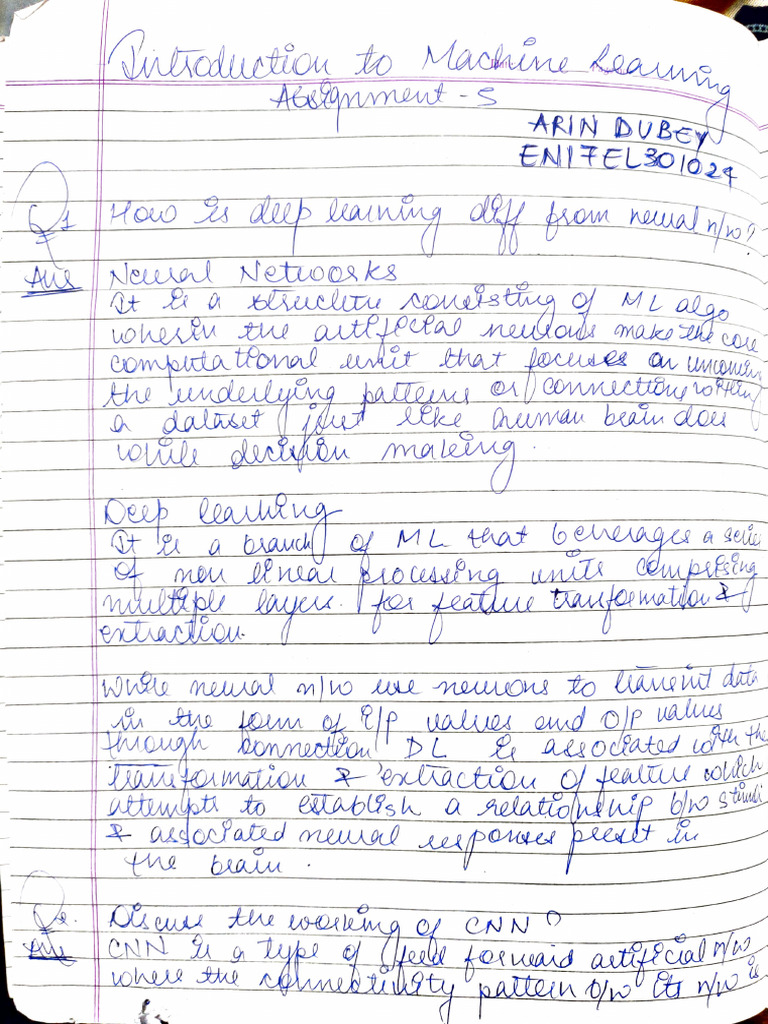 Introduction to Machine Learning
Assignment - 5
ARIN DUBEY
EN17EL301024
Q1 How is deep learning diff from neural n/w?
Ans Neural Networks
It is a structure consisting of ML algo
wherein the artificial neurons make the core
computational unit that focuses on
the underlying patterns or connections within
a dataset just like human brain does
while decision making.
Deep learning
It is a branch of ML that leverages a series
of non linear processing units comprising
multiple layers for feature transformation &
extraction.
While neural n/w use neurons to transmit data
in the form of I/P values and O/P values
through connection DL is associated with the
transformation & extraction of feature which
attempts to establish a relationship b/w stimuli
& associated neural responses preset in
the brain.
Q2. Discuss the working of CNN?
Ans CNN is a type of feed forward artificial n/w
where the connectivity pattern b/w its n/w is